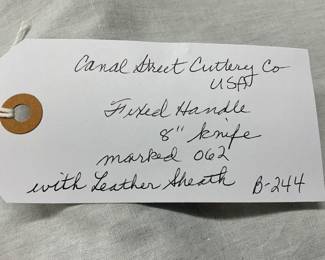 Canal Street Cutlery Co
USA
Fixed Handle
8" knife
marked 062
with Leather Sheath B-244